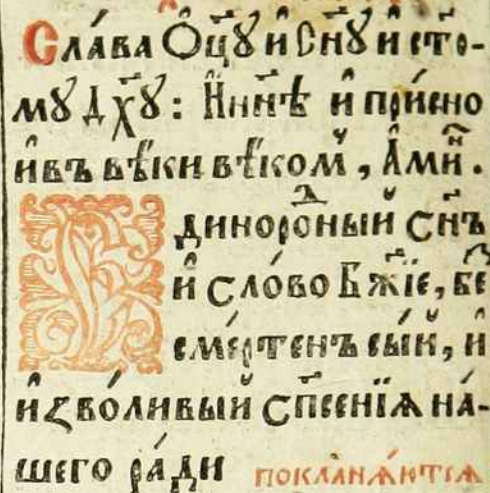 Сла́ва Ѻ҆ц҃ꙋ и҆ Сн҃ꙋ и҆ ст҃о-
мꙋ Дх҃ꙋ : И҆нн҃ѣ и҆ при́сно
и҆ въ вѣ́ки вѣко́мъ , А҆ми́нь .
Є҆динорⷪ҇дный сн҃ъ
и҆ сло́во Бж҃їе, бе
сме́ртенъ сы́й, и҆
и҆зво́ливый сп҃се́нїѧ на́-
шего ра́ди поклонѧ́ютсѧ